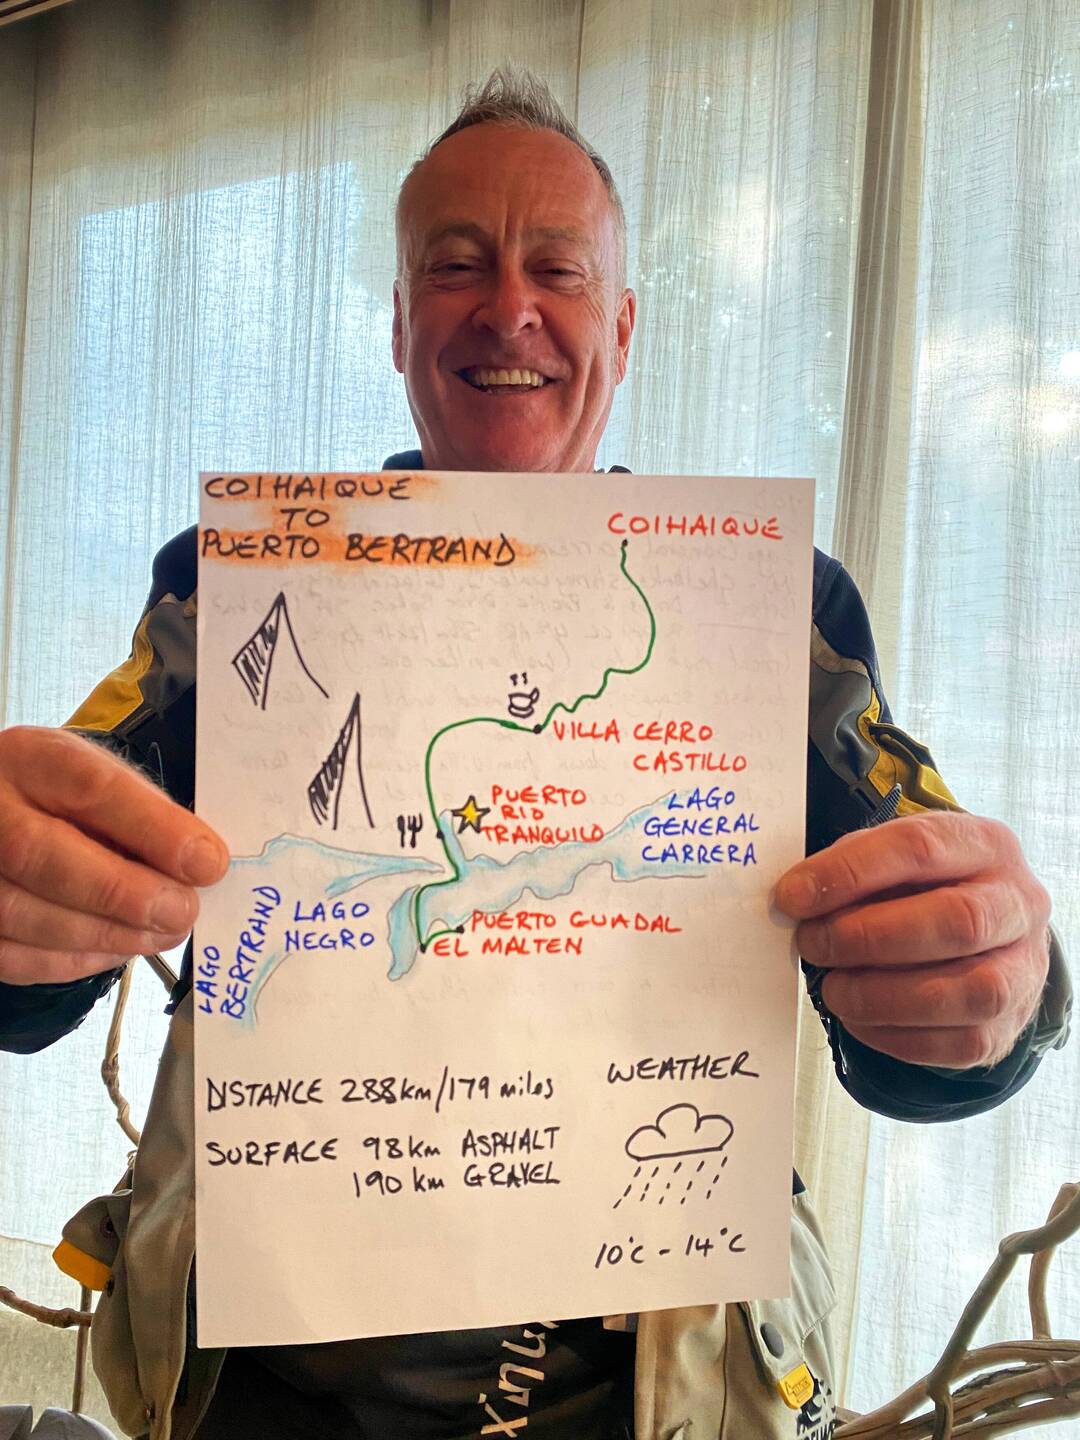 COIHAIQUE
TO
PUERTO BERTRAND
COIHAIQUE
VILLA CERRO
CASTILLO
PUERTO
RIO
TRANQUILO
LAGO
GENERAL
CARRERA
LAGO
BERTRAND
LAGO
NEGRO
PUERTO GUADAL
EL MALTEN
DISTANCE 288km/179 miles
SURFACE 98km ASPHALT
190 km GRAVEL
WEATHER
10°C - 14°C